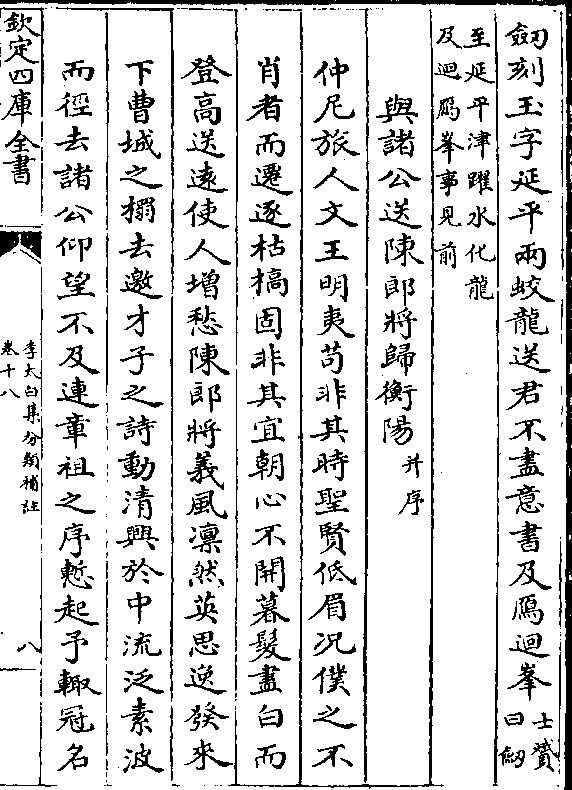 劒刻玉字延平兩蛟龍送君不盡意書及鴈迴峯士贇曰劒
至延平津躍水化龍
及迴鴈峯事見前
與諸公送陳郎將歸衡陽并序
仲尼旅人文王明夷苟非其時聖賢低眉况僕之不
肖者而遷逐枯槁固非其宜朝心不開暮髮盡白而
登高送遠使人增愁陳郎將義風凛然英思逸發來
下曹城之榻去邀才子之詩動清興於中流泛素波
而徑去諸公仰望不及連章祖之序慙起予輙冠名
欽定四庫全書
李太白集分類補註
卷十八
八